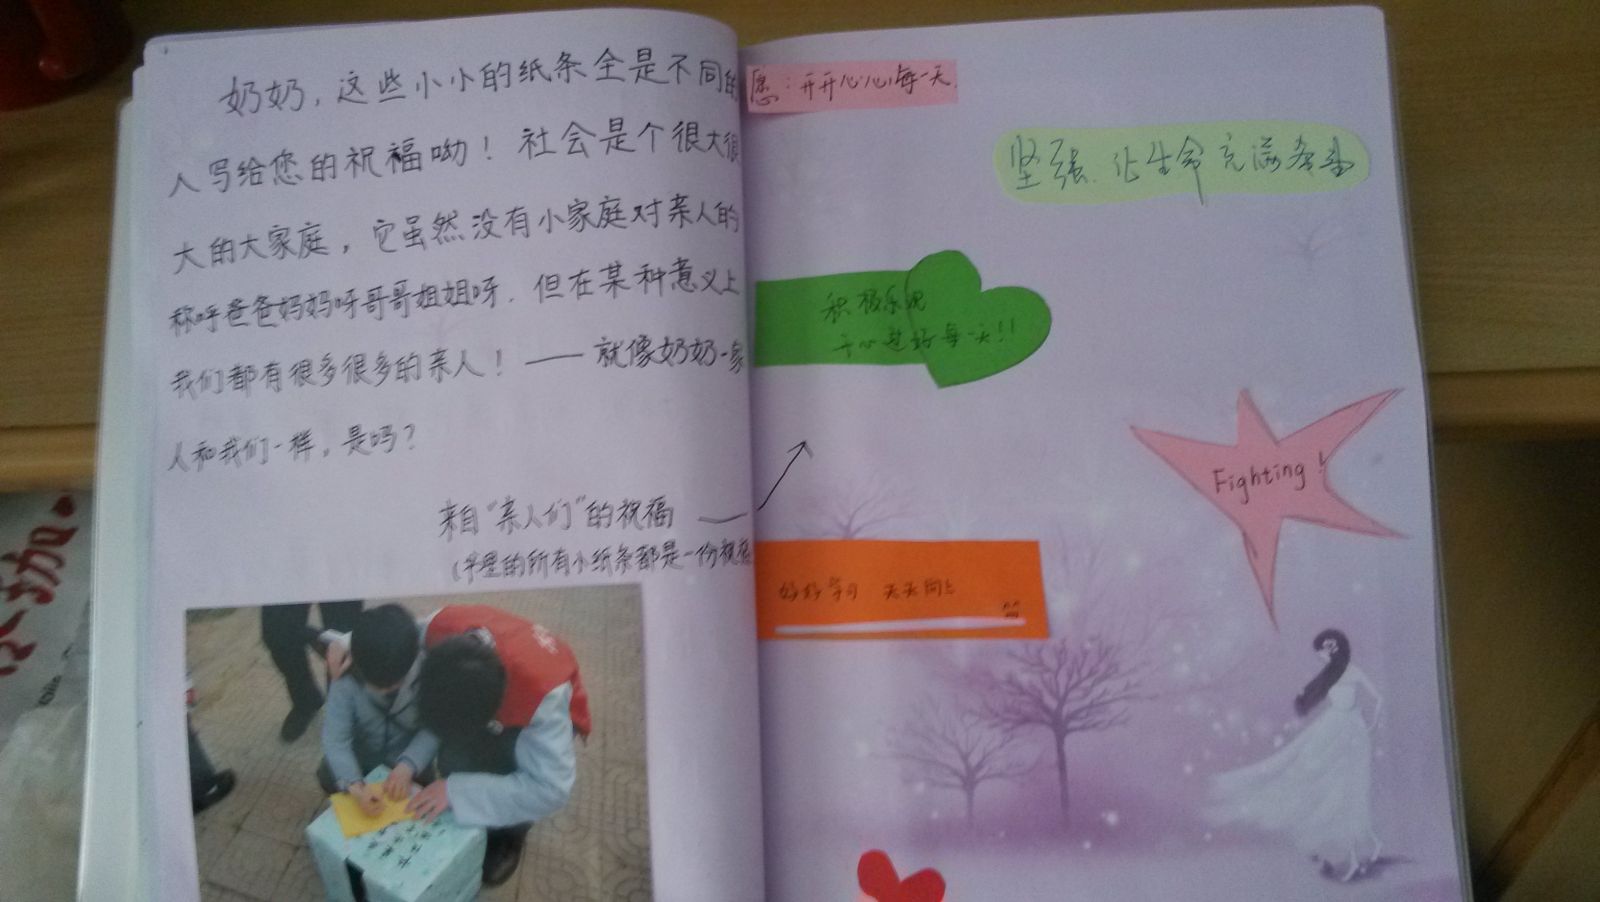 奶奶，这些小小的纸条全是不同的
人写给您的祝福呦！社会是个很大很
大的大家庭，它虽然没有小家庭对亲人的
称呼爸爸妈妈呀哥哥姐姐呀．但在某种意义上
我们都有很多很多的亲人！——就像奶奶一家
人和我们一样，是吗？
来自“亲人们”的祝福
的所有小纸条都是一份祝福
愿：开开心心每一天.
坚强.让生命充满
积极乐观
开心过好每一天!!
Fighting!
好好学习 天天向上